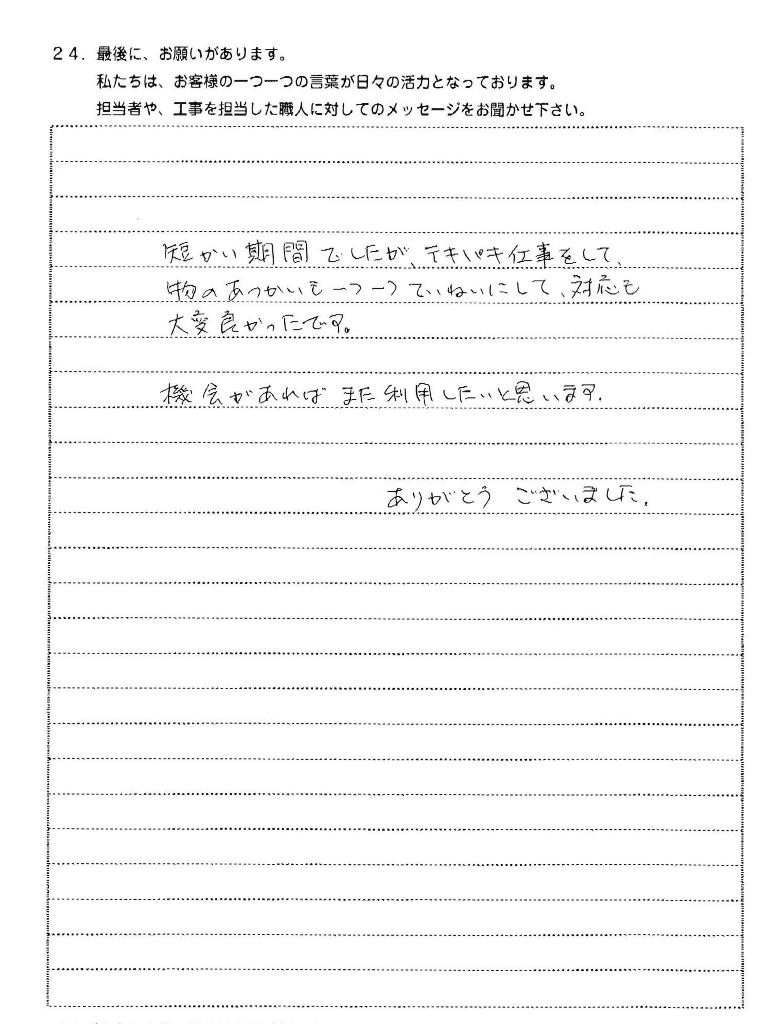 ２４．最後に、お願いがあります。
私たちは、お客様の一つ一つの言葉が日々の活力となっております。
担当者や、工事を担当した職人に対してのメッセージをお聞かせ下さい。
短かい期間でしたが、テキパキ仕事をして、
物のあつかいも一つ一つていねいにして、対応も
大変良かったです。
機会があれば また利用したいと思います.
ありがとう ございました.